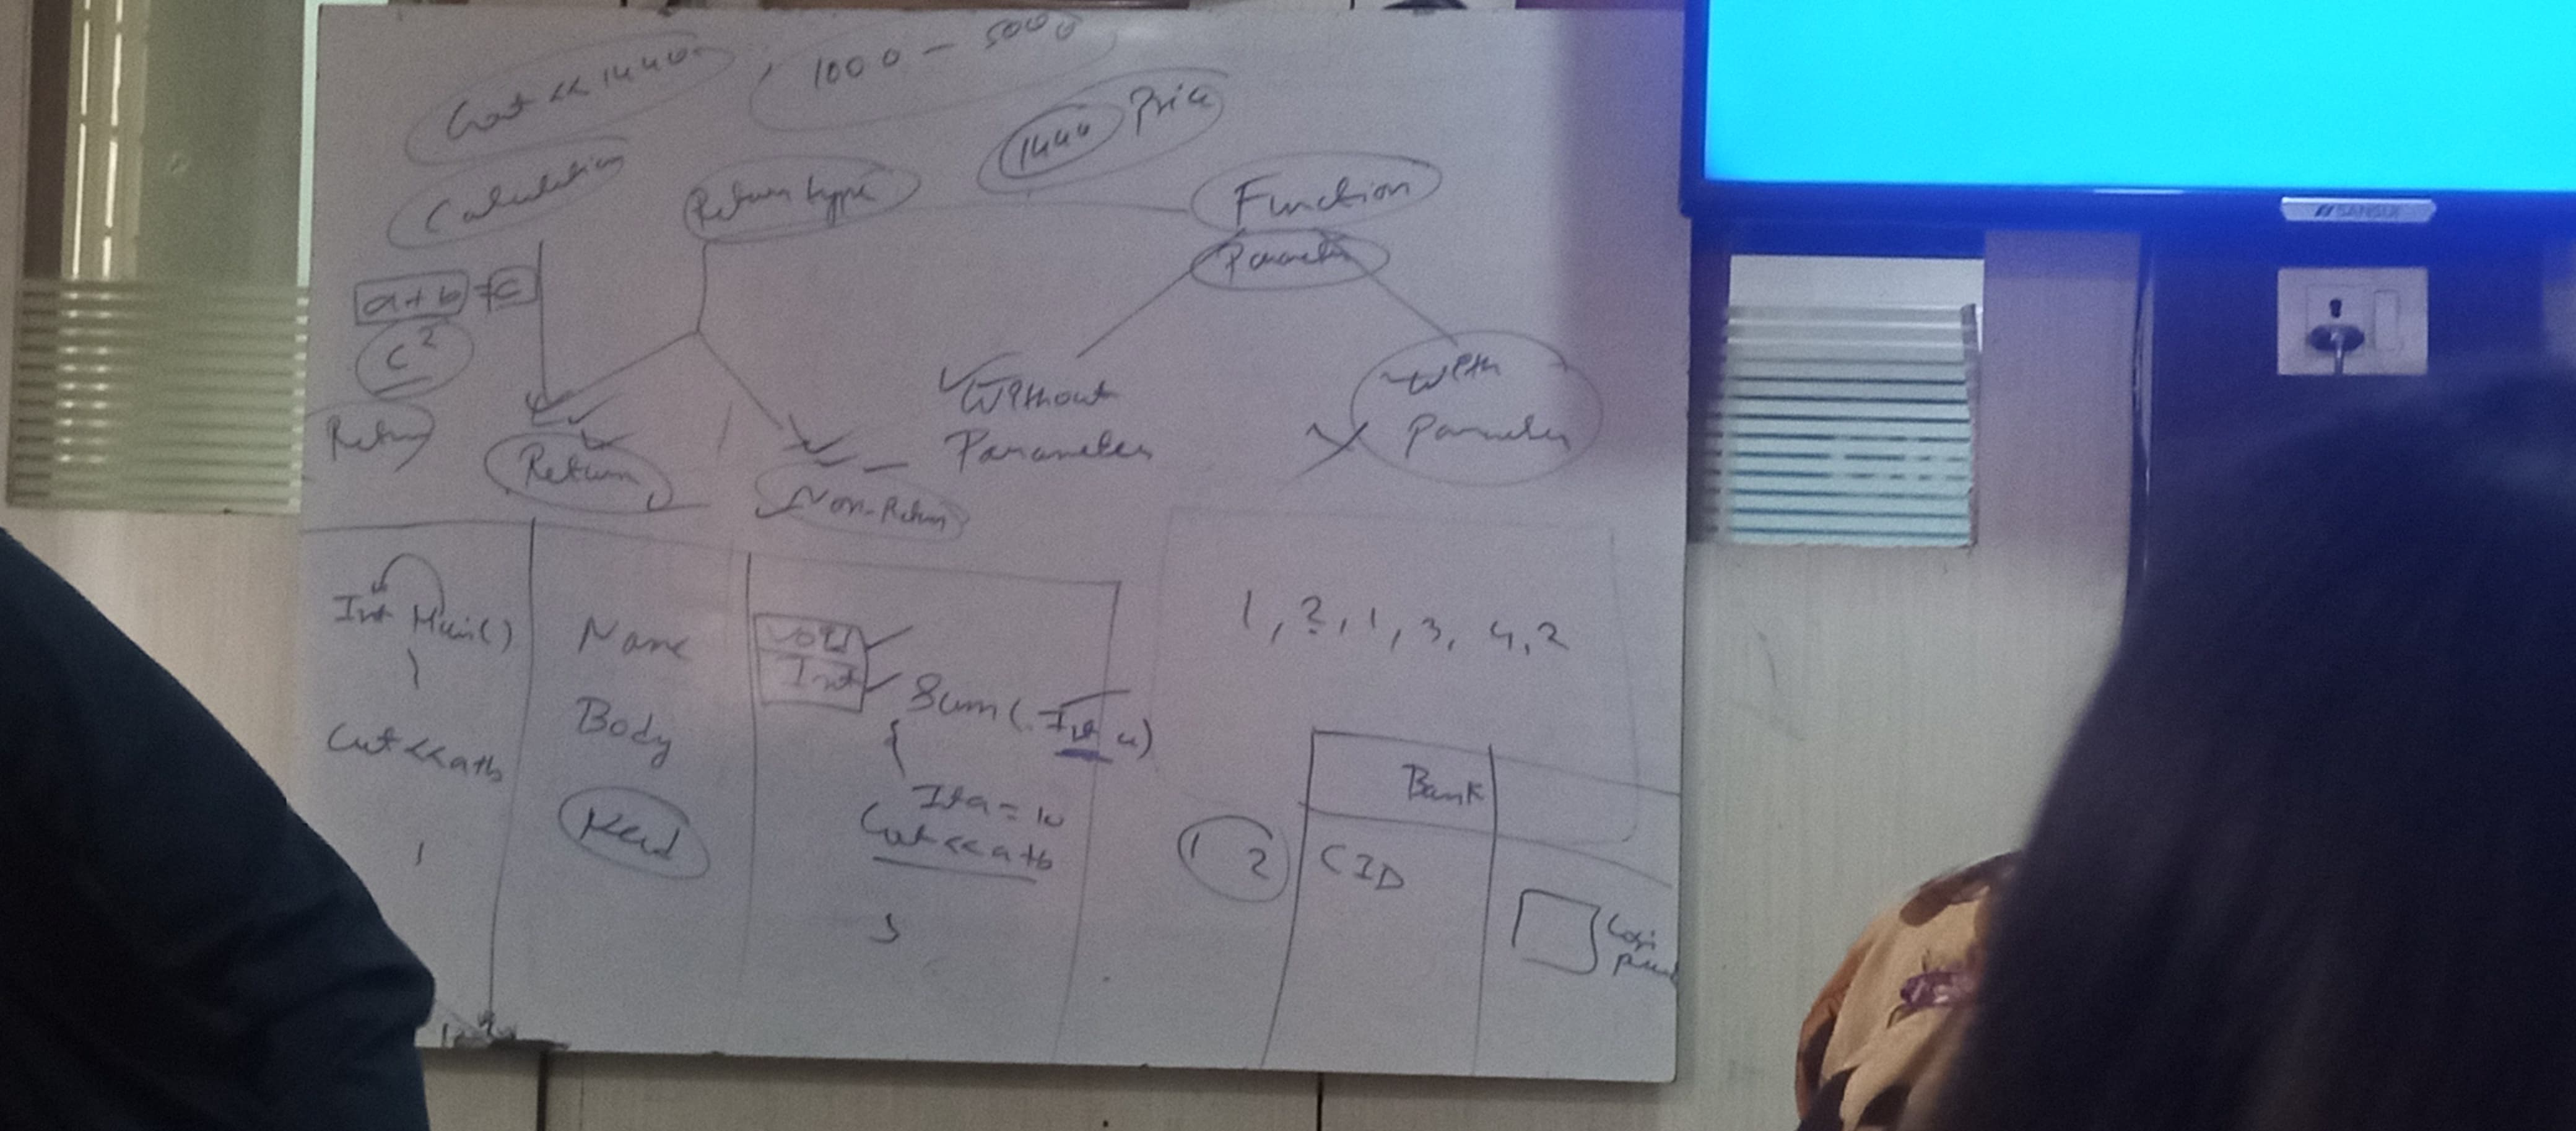 Cout << 1440
1000 - 5000
1440 Price
Calculation
Return type
Function
Parameter
a+b = c
c²
Return
Return
Non-Return
Without
Parameter
With
Parameter
Int Main()
Cut<<a+b
Name
Body
void
Int
Sum(Int a)
{
Int a = 10
Cut<<a+b
}
1, 2, 1, 3, 4, 2
Bank
1 2
CID
Login
SANSUI